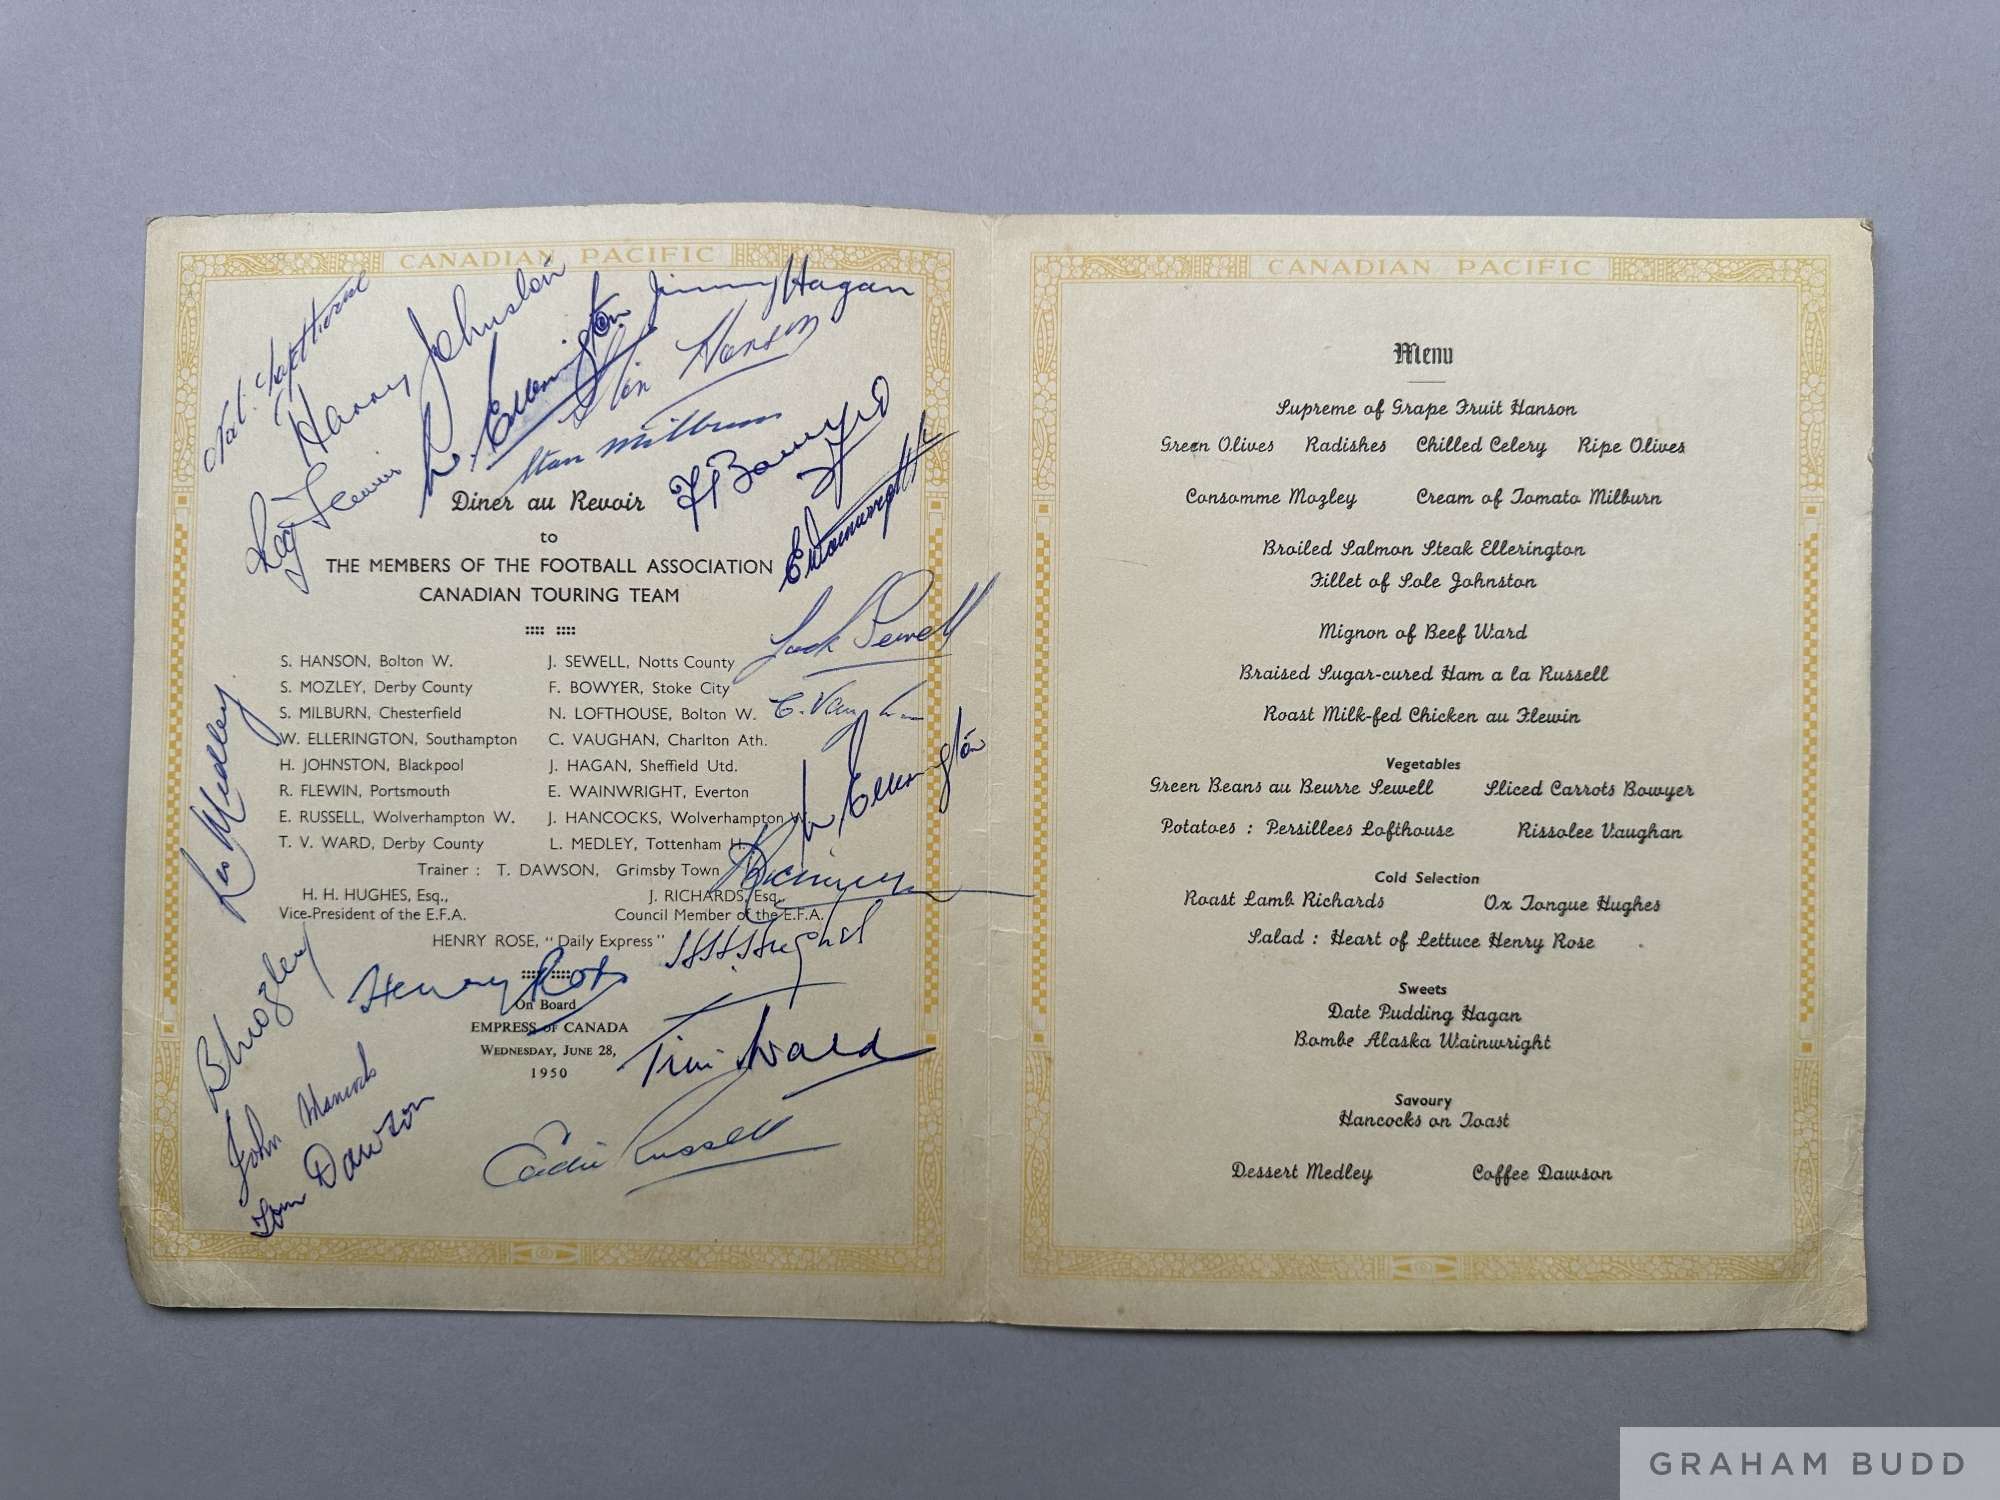 CANADIAN PACIFIC
Nat. Lofthouse
Harry Johnston
W. Ellerington
Jimmy Hagan
Stan Hanson
Stan Milburn
Reg Flewin
F Bowyer
E Wainwright
Diner au Revoir
to
THE MEMBERS OF THE FOOTBALL ASSOCIATION
CANADIAN TOURING TEAM
Jack Sewell
S. HANSON, Bolton W. J. SEWELL, Notts County
S. MOZLEY, Derby County F. BOWYER, Stoke City
C. Vaughan
S. MILBURN, Chesterfield N. LOFTHOUSE, Bolton W.
W. ELLERINGTON, Southampton C. VAUGHAN, Charlton Ath.
H. JOHNSTON, Blackpool J. HAGAN, Sheffield Utd.
R. FLEWIN, Portsmouth E. WAINWRIGHT, Everton
W. Ellerington
E. RUSSELL, Wolverhampton W. J. HANCOCKS, Wolverhampton W.
T. V. WARD, Derby County L. MEDLEY, Tottenham H.
Les Medley
Trainer : T. DAWSON, Grimsby Town
H. H. HUGHES, Esq., J. RICHARDS, Esq.,
Vice-President of the E.F.A. Council Member of the E.F.A.
HENRY ROSE, "Daily Express"
H.H.Hughes
Henry Rose
B Mozley
On Board
EMPRESS OF CANADA
WEDNESDAY, JUNE 28,
1950
Tim Ward
John Hancocks
Tom Dawson
Eddie Russell
CANADIAN PACIFIC
Menu
Supreme of Grape Fruit Hanson
Green Olives Radishes Chilled Celery Ripe Olives
Consomme Mozley Cream of Tomato Milburn
Broiled Salmon Steak Ellerington
Fillet of Sole Johnston
Mignon of Beef Ward
Braised Sugar-cured Ham a la Russell
Roast Milk-fed Chicken au Flewin
Vegetables
Green Beans au Beurre Sewell Sliced Carrots Bowyer
Potatoes : Persillees Lofthouse Rissolee Vaughan
Cold Selection
Roast Lamb Richards Ox Tongue Hughes
Salad : Heart of Lettuce Henry Rose
Sweets
Date Pudding Hagan
Bombe Alaska Wainwright
Savoury
Hancocks on Toast
Dessert Medley Coffee Dawson
GRAHAM BUDD